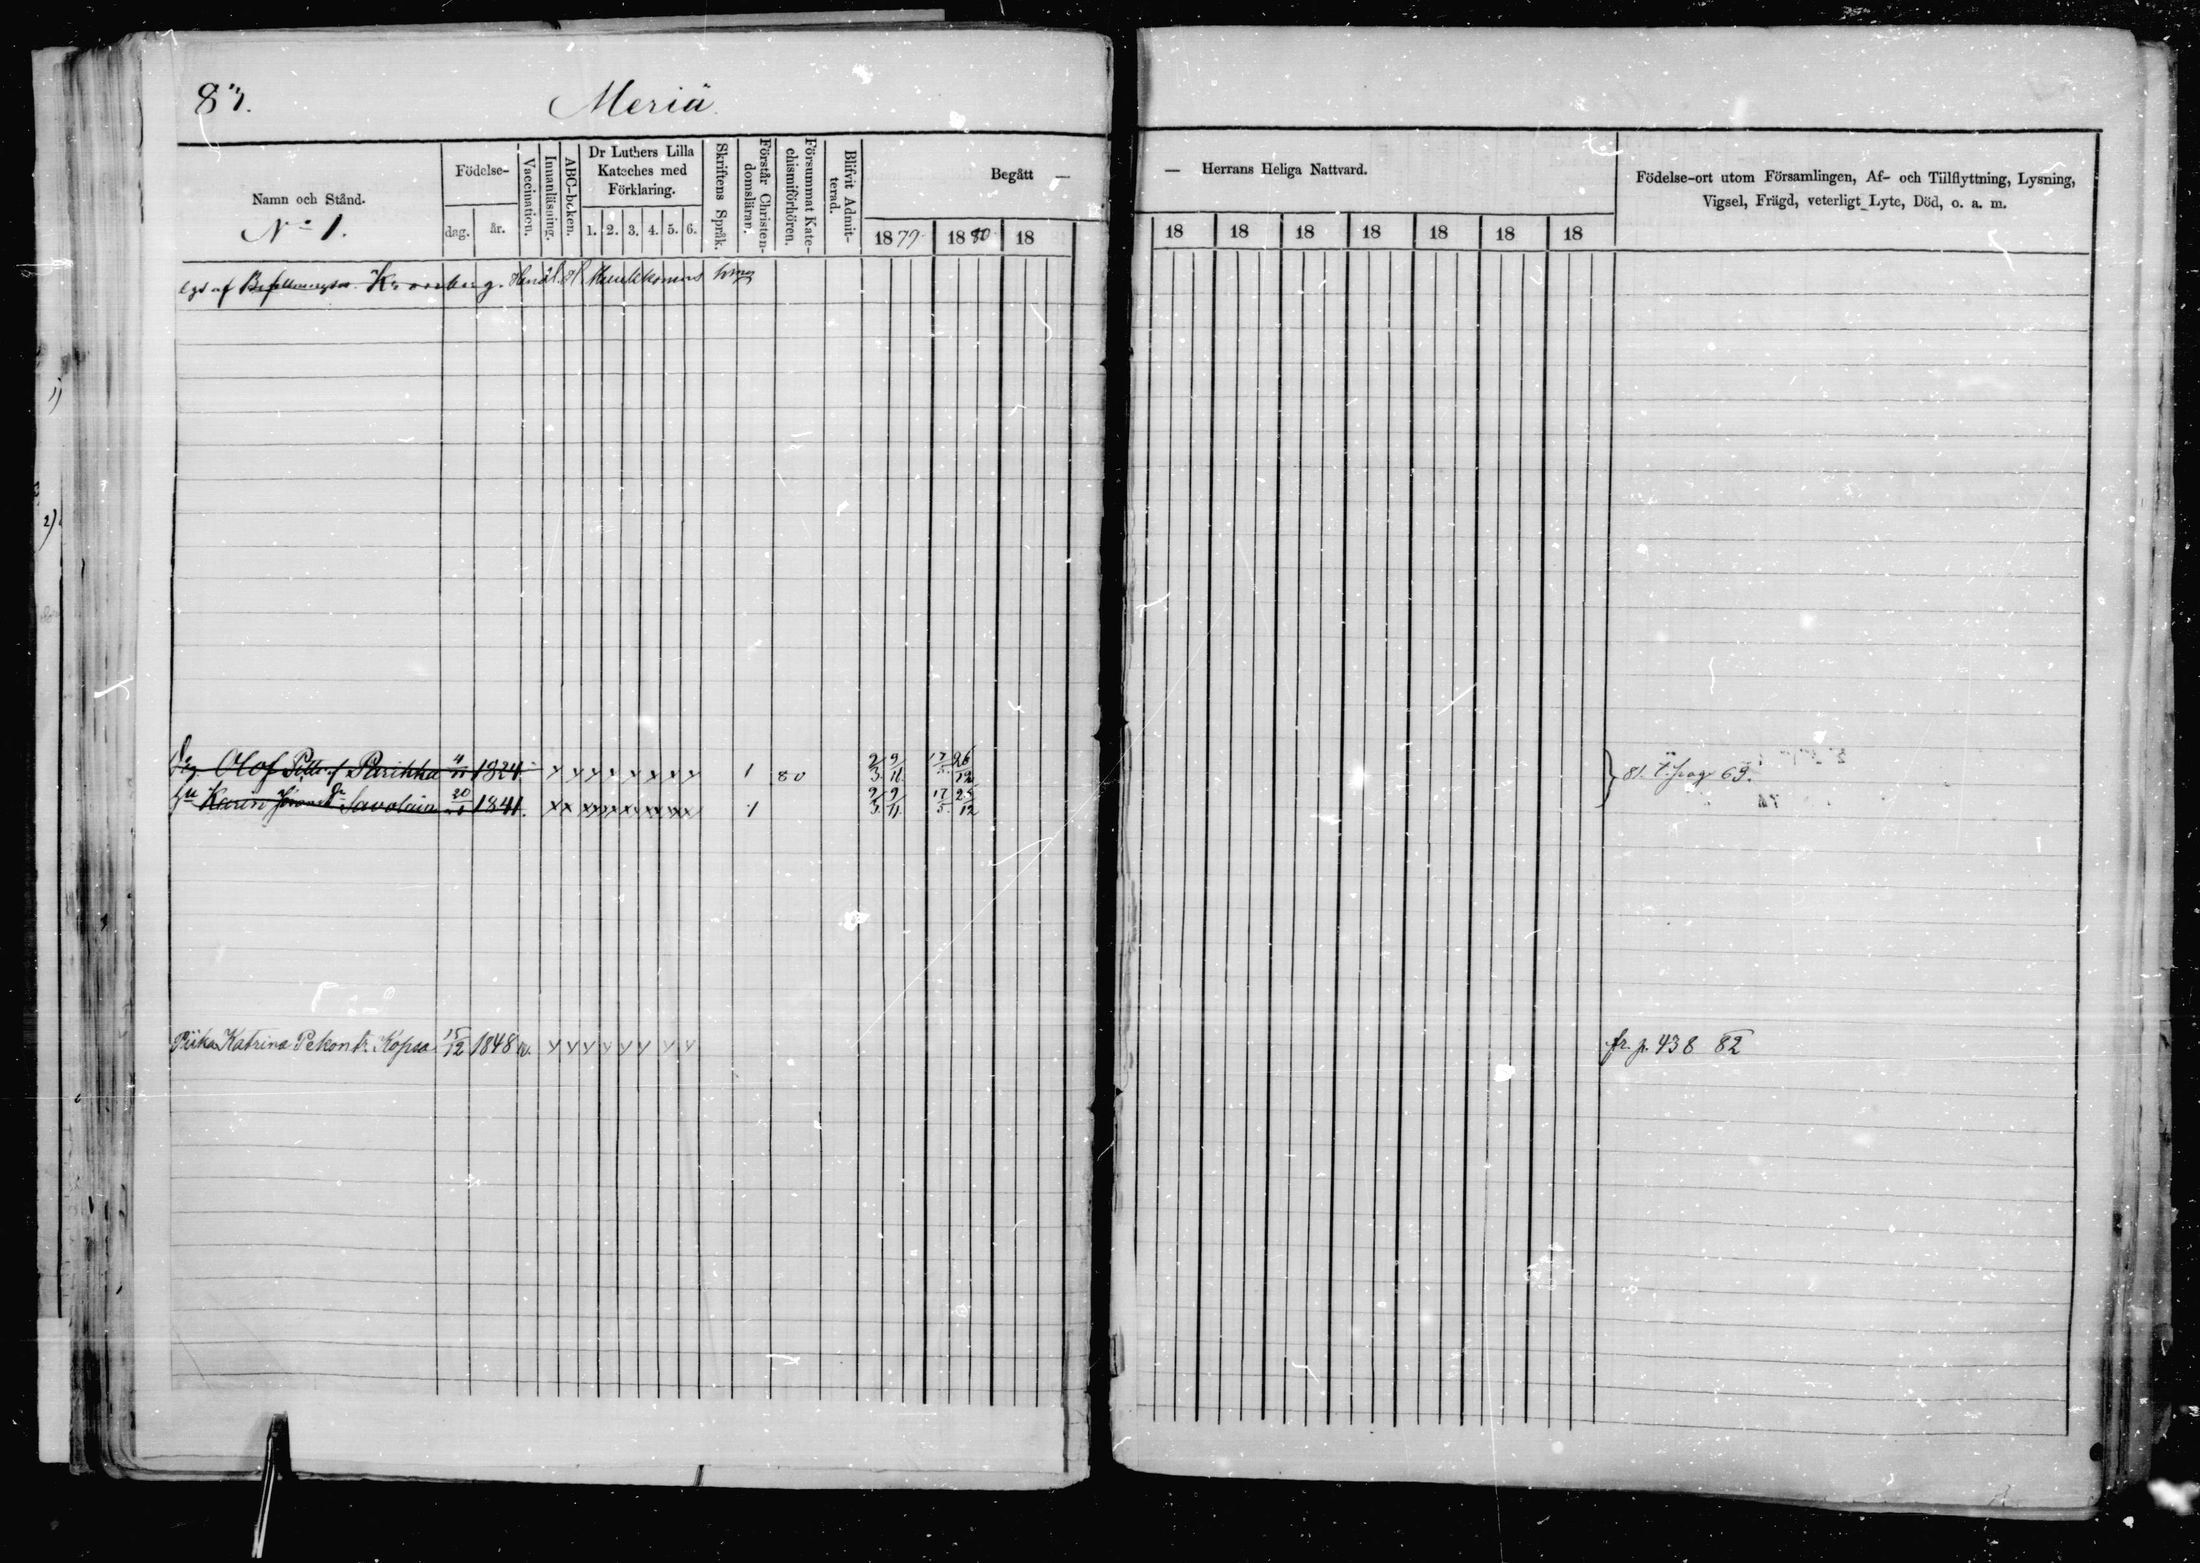 83.
Meriä
Namn och Stånd.
No 1.
Födelse-
dag. år.
Vaccination.
Innanläsning.
ABC-boken.
Dr Luthers Lilla Kateches med Förklaring.
1. 2. 3. 4. 5. 6.
Skriftens Språk.
Förstår Christendomsläran.
Försummat Katechismiförhören.
Blifvit Admitterad.
Begått —
1879 1880 18
— Herrans Heliga Nattvard.
18 18 18 18 18 18 18
Födelse-ort utom Församlingen, Af- och Tillflyttning, Lysning,
Vigsel, Frägd, veterligt Lyte, Död, o. a. m.
egs af
Olof Parikka 1824 x x x x x x x x 1 80 2/3 9/11 17/5 26/12
Karin Savolain 20 1841. 1 2/3 9/11 17/5 25/12
81. t. pag. 69.
Piika Katrina Pekontr. Kopsa 15/12 1848 v. x x x x x x x x fr. p. 438 82